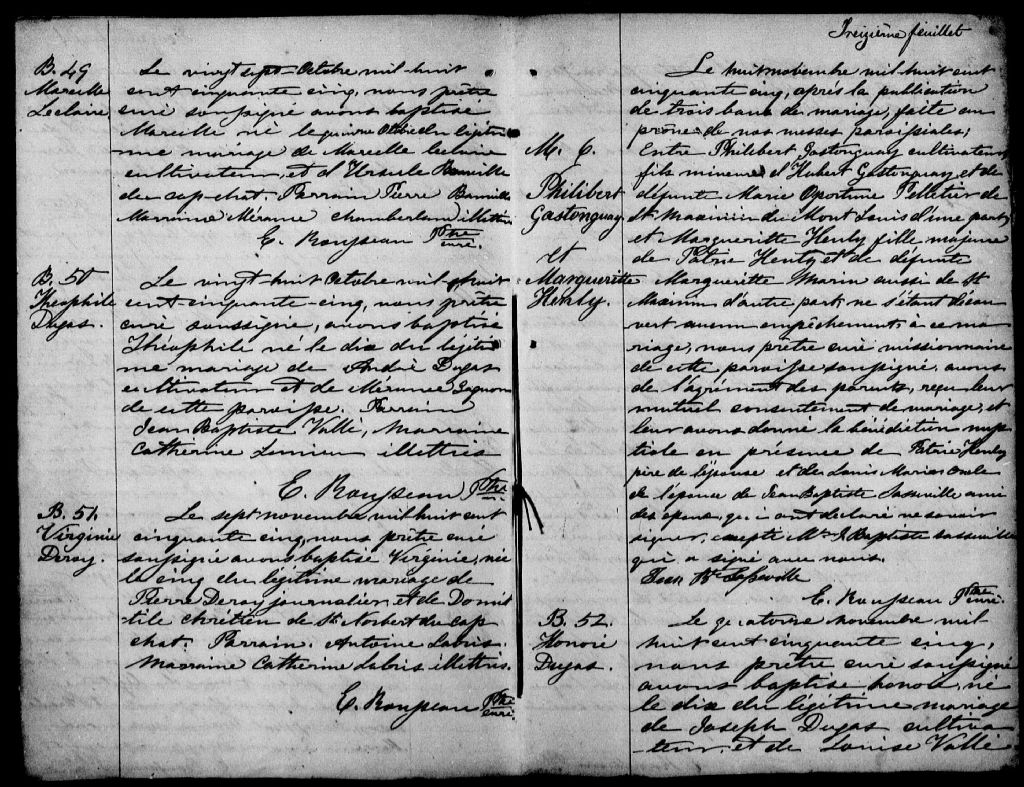 B. 49
Marcelle
Leclaire
Le vingt sept Octobre mil huit
cent cinquante cinq, nous prêtre
curé soussigné avons baptisé
Marcelle né le quinze Octobre du légiti
me mariage de Marcelle Leclaire
cultivateur, et d'Ursule Banville
de cap-chat. Parrain Pierre Banville
Marraine Mérance Chamberland illettrés
E. Rousseau Ptre
curé.
B. 50
Théophile
Dugas.
Le vingt-huit Octobre mil-huit
cent cinquante-cinq, nous prêtre
curé soussigné, avons baptisé
Théophile né le dix du légiti
me mariage de André Dugas
cultivateur et de Mérance Gagnon
de cette paroisse. Parrain
Jean Baptiste Vallé, Marraine
Catherine illettrés
E. Rousseau Ptre
B. 51.
Virginie
Deroy.
Le sept novembre mil huit cent
cinquante cinq, nous prêtre curé
soussigné avons baptisé Virginie, née
le cinq du légitime mariage de
Pierre Deroy journalier, et de Domit
tile chrétien de St Norbert du cap
chat. Parrain. Antoine Labris.
Marraine Catherine Labris illettrés.
E. Rousseau Ptre
curé.
Treizième feuillet
M. 6.
Philibert
Gastonguay
et
Margueritte
Henly.
Le huit novembre mil huit cent
cinquante cinq, après la publication
de trois bans de mariage, faite au
prône de nos messes paroissiales;
Entre Philibert Gastonguay cultivateur
fils mineur d'Hubert Gastonguay, et de
défunte Marie Oportune Pelletier de
St. Maximin du Mont Louis d'une part,
et Marguerite Henly fille majeure
de Patric Henly et de défunte
Marguerite Marin aussi de St
Maximin d'autre part; ne s'étant décou
vert aucun empêchement, à ce ma
riage, nous prêtre curé missionnaire
de cette paroisse soussigné, avons
de l'agrément des parents, reçu leur
mutuel consentement de mariage, et
leur avons donné la bénédiction nup
tiale en présence de Patric Henly
père de l'épouse et de Louis Marin oncle
de l'épouse de Jean Baptiste Sasseville ami
des époux, qui ont déclaré ne savoir
signer, excepté Mr J. Baptiste Sasseville
qui a signé avec nous.
Jean Bte Sasseville
E. Rousseau Ptre
curé.
B. 52.
Honoré
Dugas.
Le quatorze novembre mil
huit cent cinquante cinq,
nous prêtre curé soussigné
avons baptisé honoré, né
le dix du légitime mariage
de Joseph Dugas cultiva
teur, et de Louise Vallé